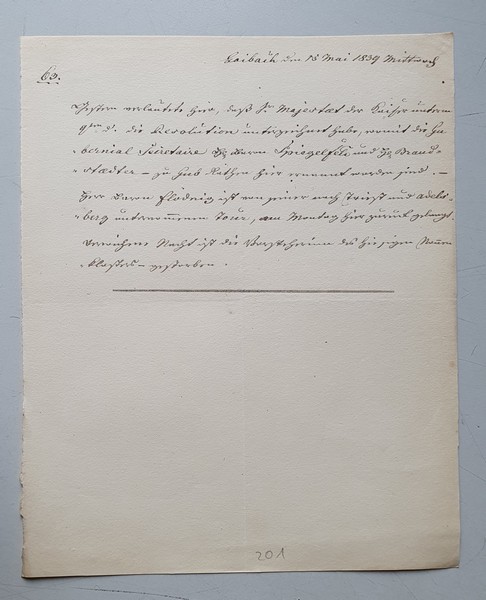 Laibach den 15 Mai 1839 Mittwoch
62.
Gestern verlautete hier, daß Sr Majestaet der Kaiser unterm
9ten d. die Resolution unterzeichnet habe, womit die Gu=
bernial Secretaire Hr Baron Spiegelfeld und Hr Brand=
=staedter – zu Gub Räthen hier ernannt worden sind. –
Herr Baron Flödnig ist von seiner nach Triest und Adels=
=berg unternommenen Tour, am Montag hier zurück gelangt.
Verwichene Nacht ist die Vorsteherinn des hiesigen Nonnen
=klosters – gestorben.
201